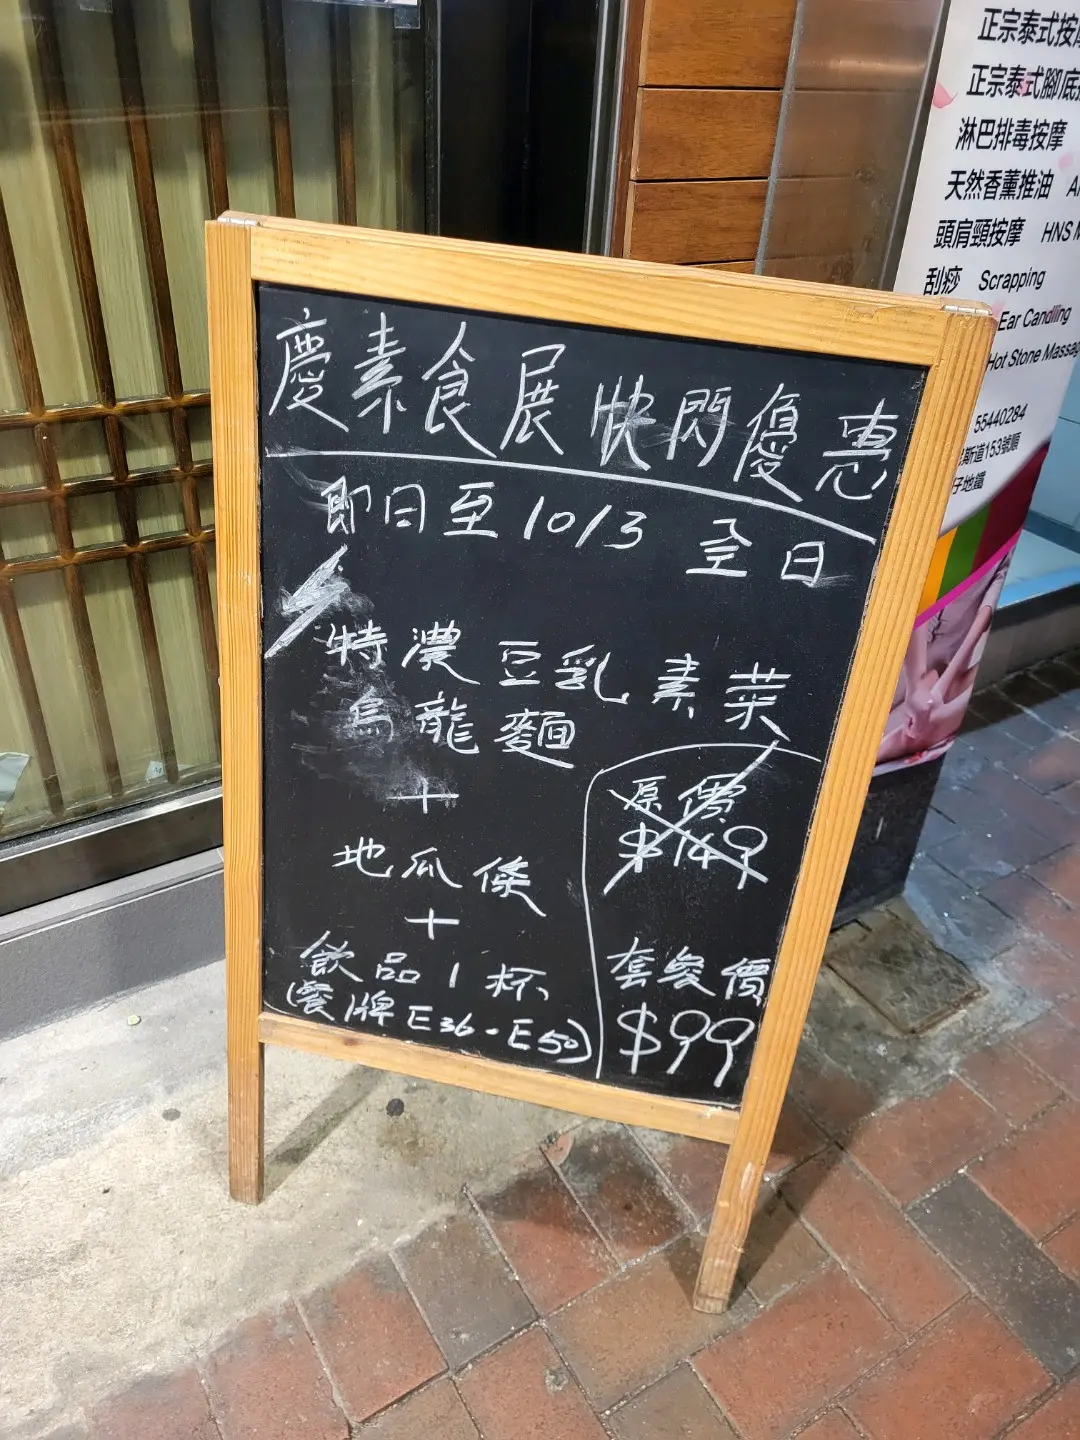 慶素食展快閃優惠
即日至10/3 全日
特濃豆乳素菜
烏龍麵
+
地瓜條
+
飲品1杯
(餐牌E36-E50)
原價
$149
套餐價
$99
正宗泰式按摩
正宗泰式腳底
淋巴排毒按摩
天然香薰推油
頭肩頸按摩 HNS
刮痧 Scrapping
Ear Candling
Hot Stone Massag
55440284
斯道153號順
仔地鐵